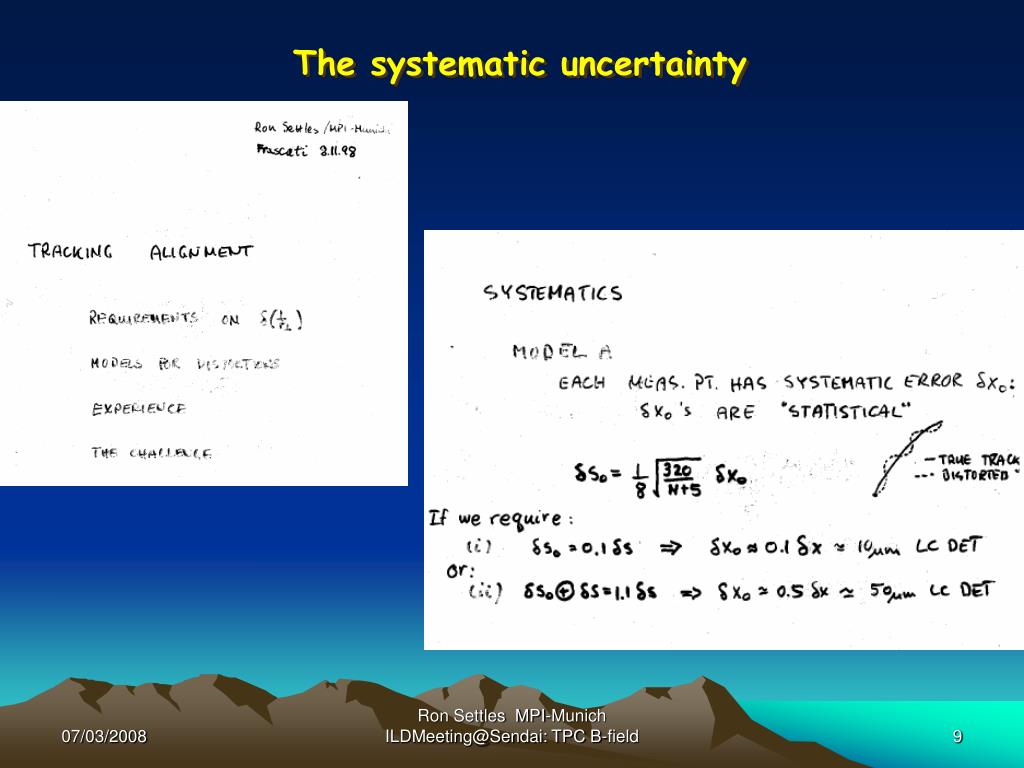 The systematic uncertainty
Ron Settles /MPI-Munich
Frascati 3.11.98
TRACKING ALIGNMENT
REQUIREMENTS ON δ(1/p⊥)
MODELS FOR DISTORTIONS
EXPERIENCE
THE CHALLENGE
SYSTEMATICS
MODEL A
EACH MEAS. PT. HAS SYSTEMATIC ERROR δx₀:
δx₀'s ARE "STATISTICAL"
— TRUE TRACK
--- DISTORTED "
δs₀ = 1/8 √(320/(N+5)) δx₀
If we require :
(i) δs₀ = 0.1 δs ⇒ δx₀ ≈ 0.1 δx ≈ 10μm LC DET
or:
(ii) δs₀ ⊕ δs = 1.1 δs ⇒ δx₀ ≈ 0.5 δx ≃ 50μm LC DET
07/03/2008
Ron Settles MPI-Munich
ILDMeeting@Sendai: TPC B-field
9